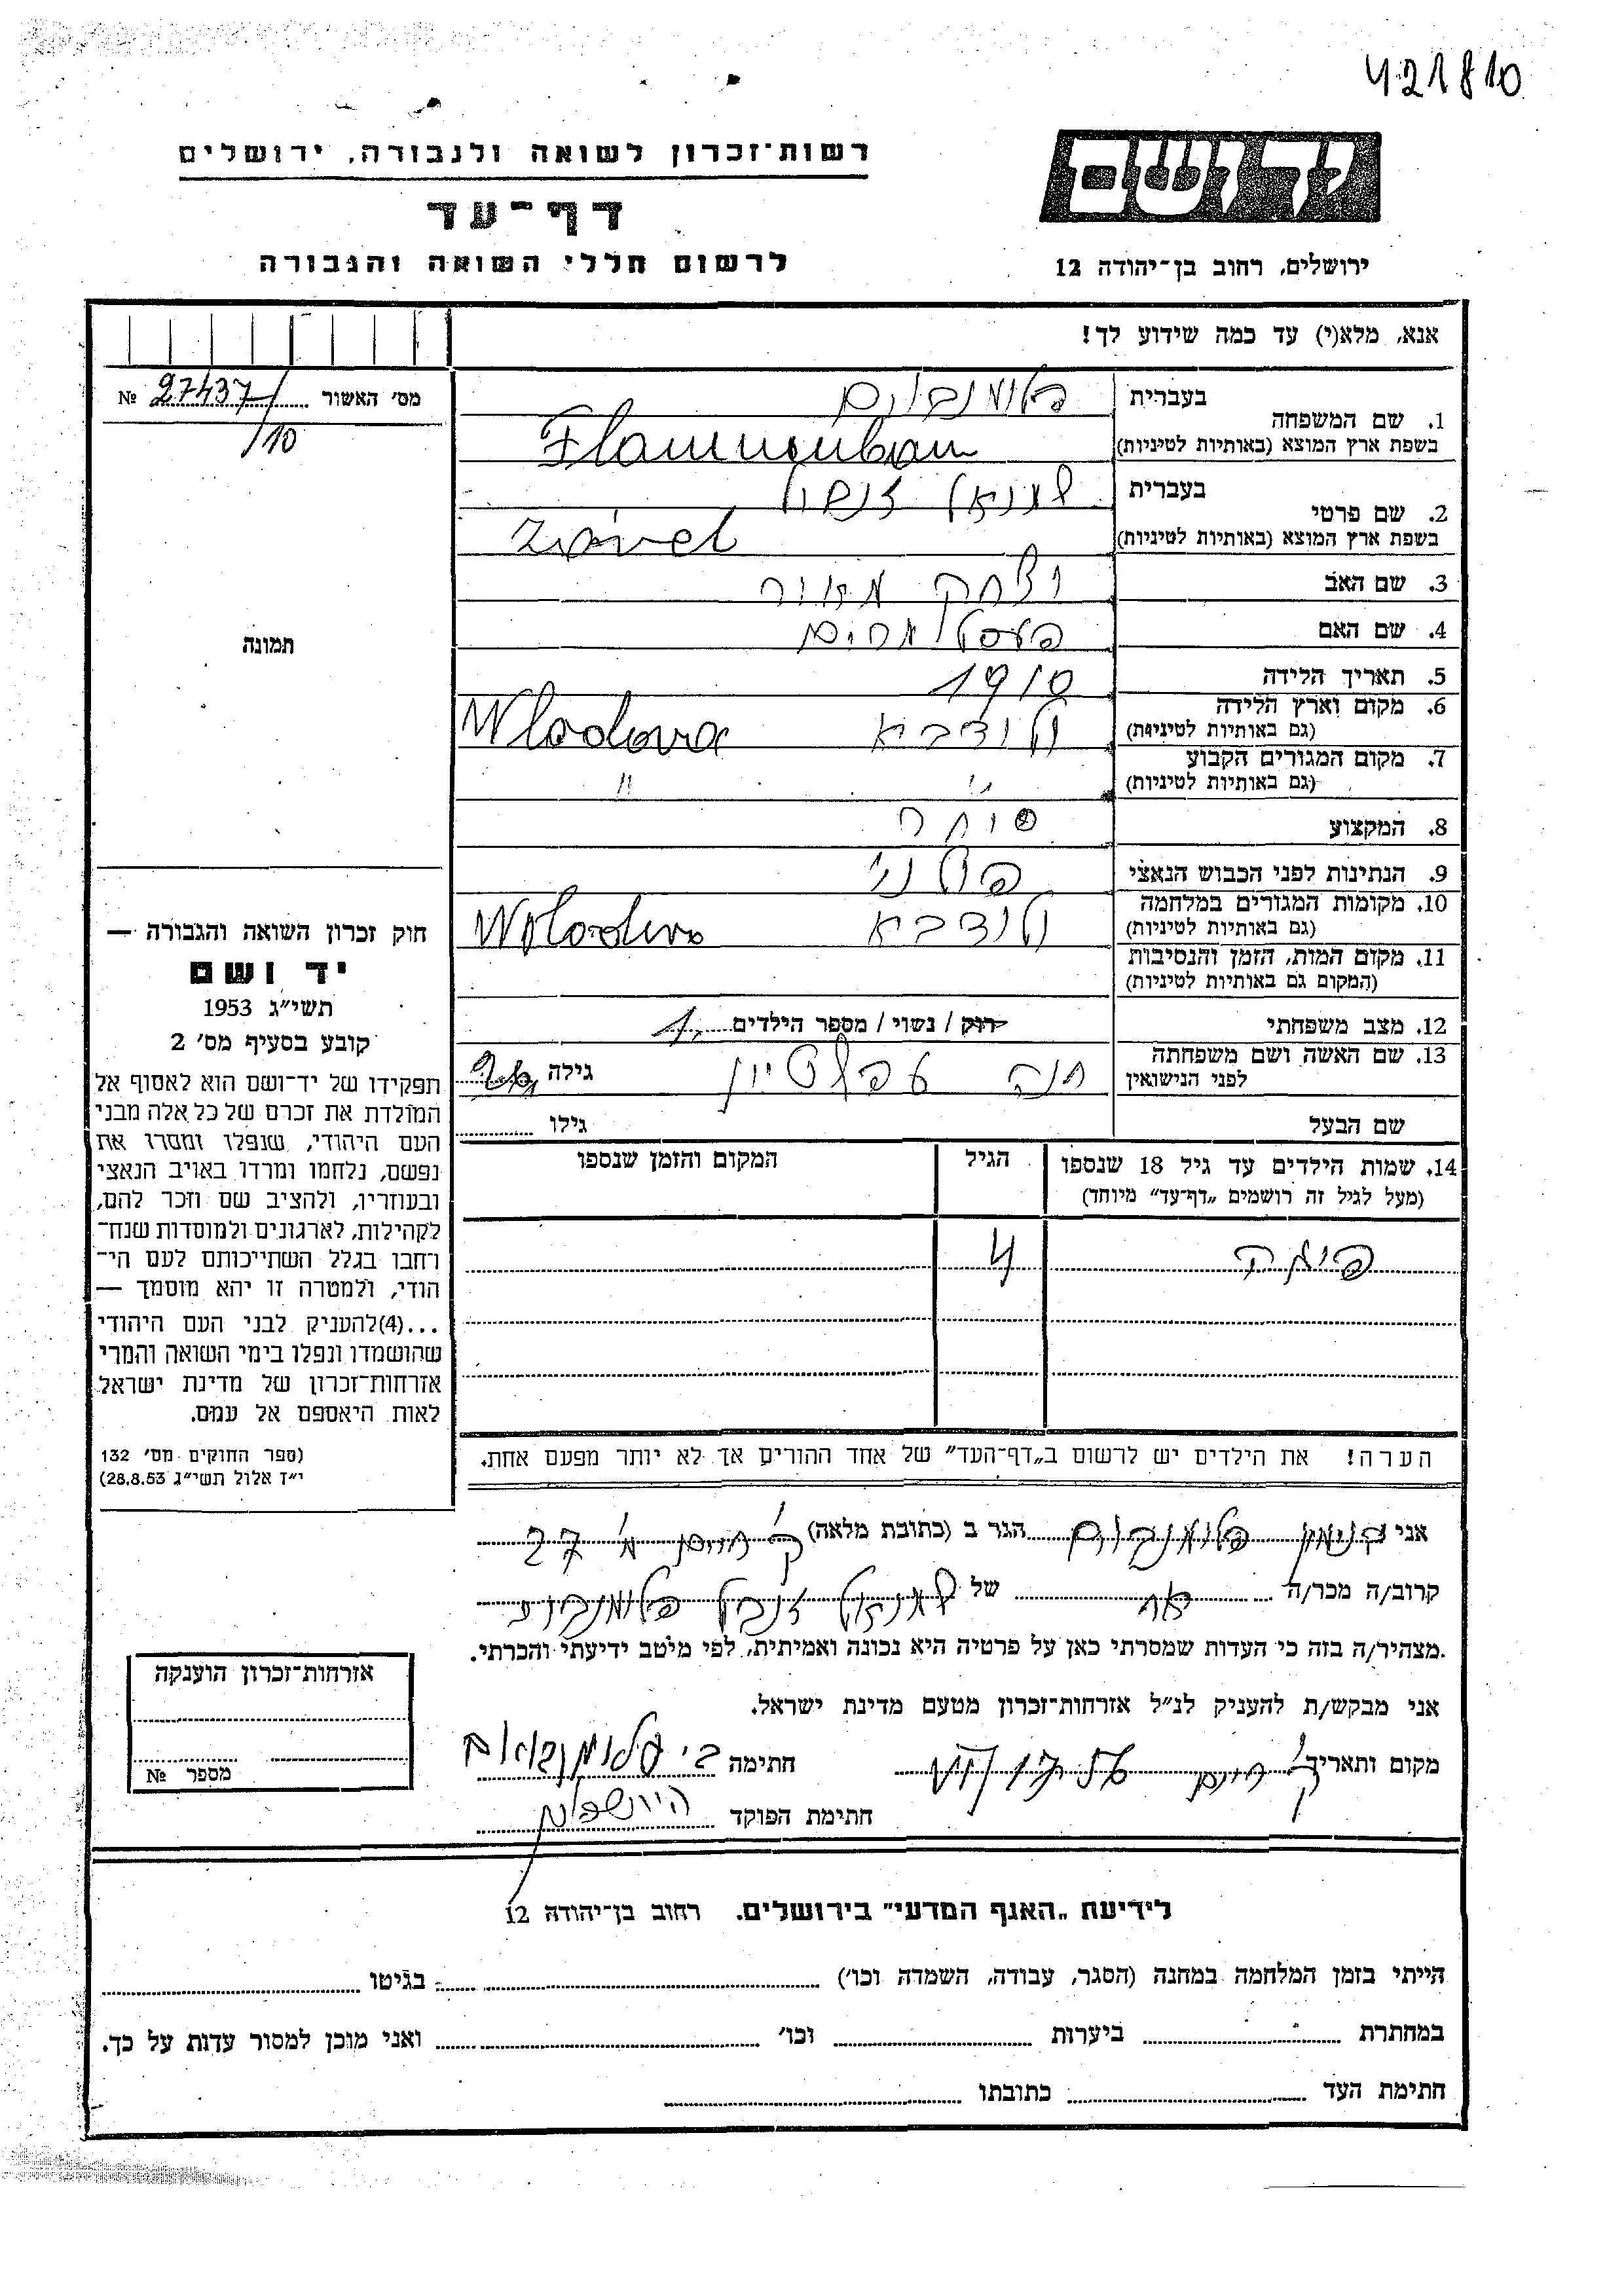 421810
יד ושם
רשות־זכרון לשואה ולגבורה, ירושלים
דף־עד
לרשום חללי השואה והגבורה
ירושלים, רחוב בן־יהודה 12
אנא, מלא(י) עד כמה שידוע לך!
מס׳ האשור 27437 №
/10
תמונה
חוק זכרון השואה והגבורה —
יד ושם
תשי״ג 1953
קובע בסעיף מס׳ 2
תפקידו של יד־ושם הוא לאסוף אל
המולדת את זכרם של כל אלה מבני
העם היהודי, שנפלו ומסרו את
נפשם, נלחמו ומרדו באויב הנאצי
ובעוזריו, ולהציב שם וזכר להם,
לקהילות, לארגונים ולמוסדות שנח־
רבו בגלל השתייכותם לעם הי־
הודי, ולמטרה זו יהא מוסמך —
...(4)להעניק לבני העם היהודי
שהושמדו ונפלו בימי השואה והמרי
אזרחות־זכרון של מדינת ישראל
לאות היאספם אל עמם.
(ספר החוקים מס׳ 132
י״ז אלול תשי״ג 28.8.53)
בעברית פלומנבוים
1. שם המשפחה
בשפת ארץ המוצא (באותיות לטיניות) Flamenbam
בעברית
2. שם פרטי
בשפת ארץ המוצא (באותיות לטיניות)
3. שם האב יצחק מאיר
4. שם האם
5. תאריך הלידה 1910
6. מקום וארץ הלידה ולודבא Wlodova
(גם באותיות לטיניות)
7. מקום המגורים הקבוע
(גם באותיות לטיניות) " "
8. המקצוע סוחר
9. הנתינות לפני הכבוש הנאצי פולני
10. מקומות המגורים במלחמה ולודבא
(גם באותיות לטיניות)
11. מקום המות, הזמן והנסיבות
(המקום גם באותיות לטיניות)
12. מצב משפחתי רוק / נשוי / מספר הילדים 1
13. שם האשה ושם משפחתה חנה גילה
לפני הנישואין
שם הבעל גילו
14. שמות הילדים עד גיל 18 שנספו הגיל המקום והזמן שנספו
(מעל לגיל זה רושמים „דף־עד״ מיוחד)
4
הערה! את הילדים יש לרשום ב„דף־העד״ של אחד ההורים אך לא יותר מפעם אחת.
אני פלומנבוים הגר ב (כתובת מלאה) ק. חיים 27
קרוב/ה מכר/ה אח של
מצהיר/ה בזה כי העדות שמסרתי כאן על פרטיה היא נכונה ואמיתית, לפי מיטב ידיעתי והכרתי.
אני מבקש/ת להעניק לנ״ל אזרחות־זכרון מטעם מדינת ישראל.
מקום ותאריך ק. חיים חתימה
חתימת הפוקד
אזרחות־זכרון הוענקה
מספר №
לידיעת „האגף המדעי״ בירושלים. רחוב בן־יהודה 12
הייתי בזמן המלחמה במחנה (הסגר, עבודה, השמדה וכו׳) בגיטו
במחתרת ביערות וכו׳ ואני מוכן למסור עדות על כך.
חתימת העד כתובתו